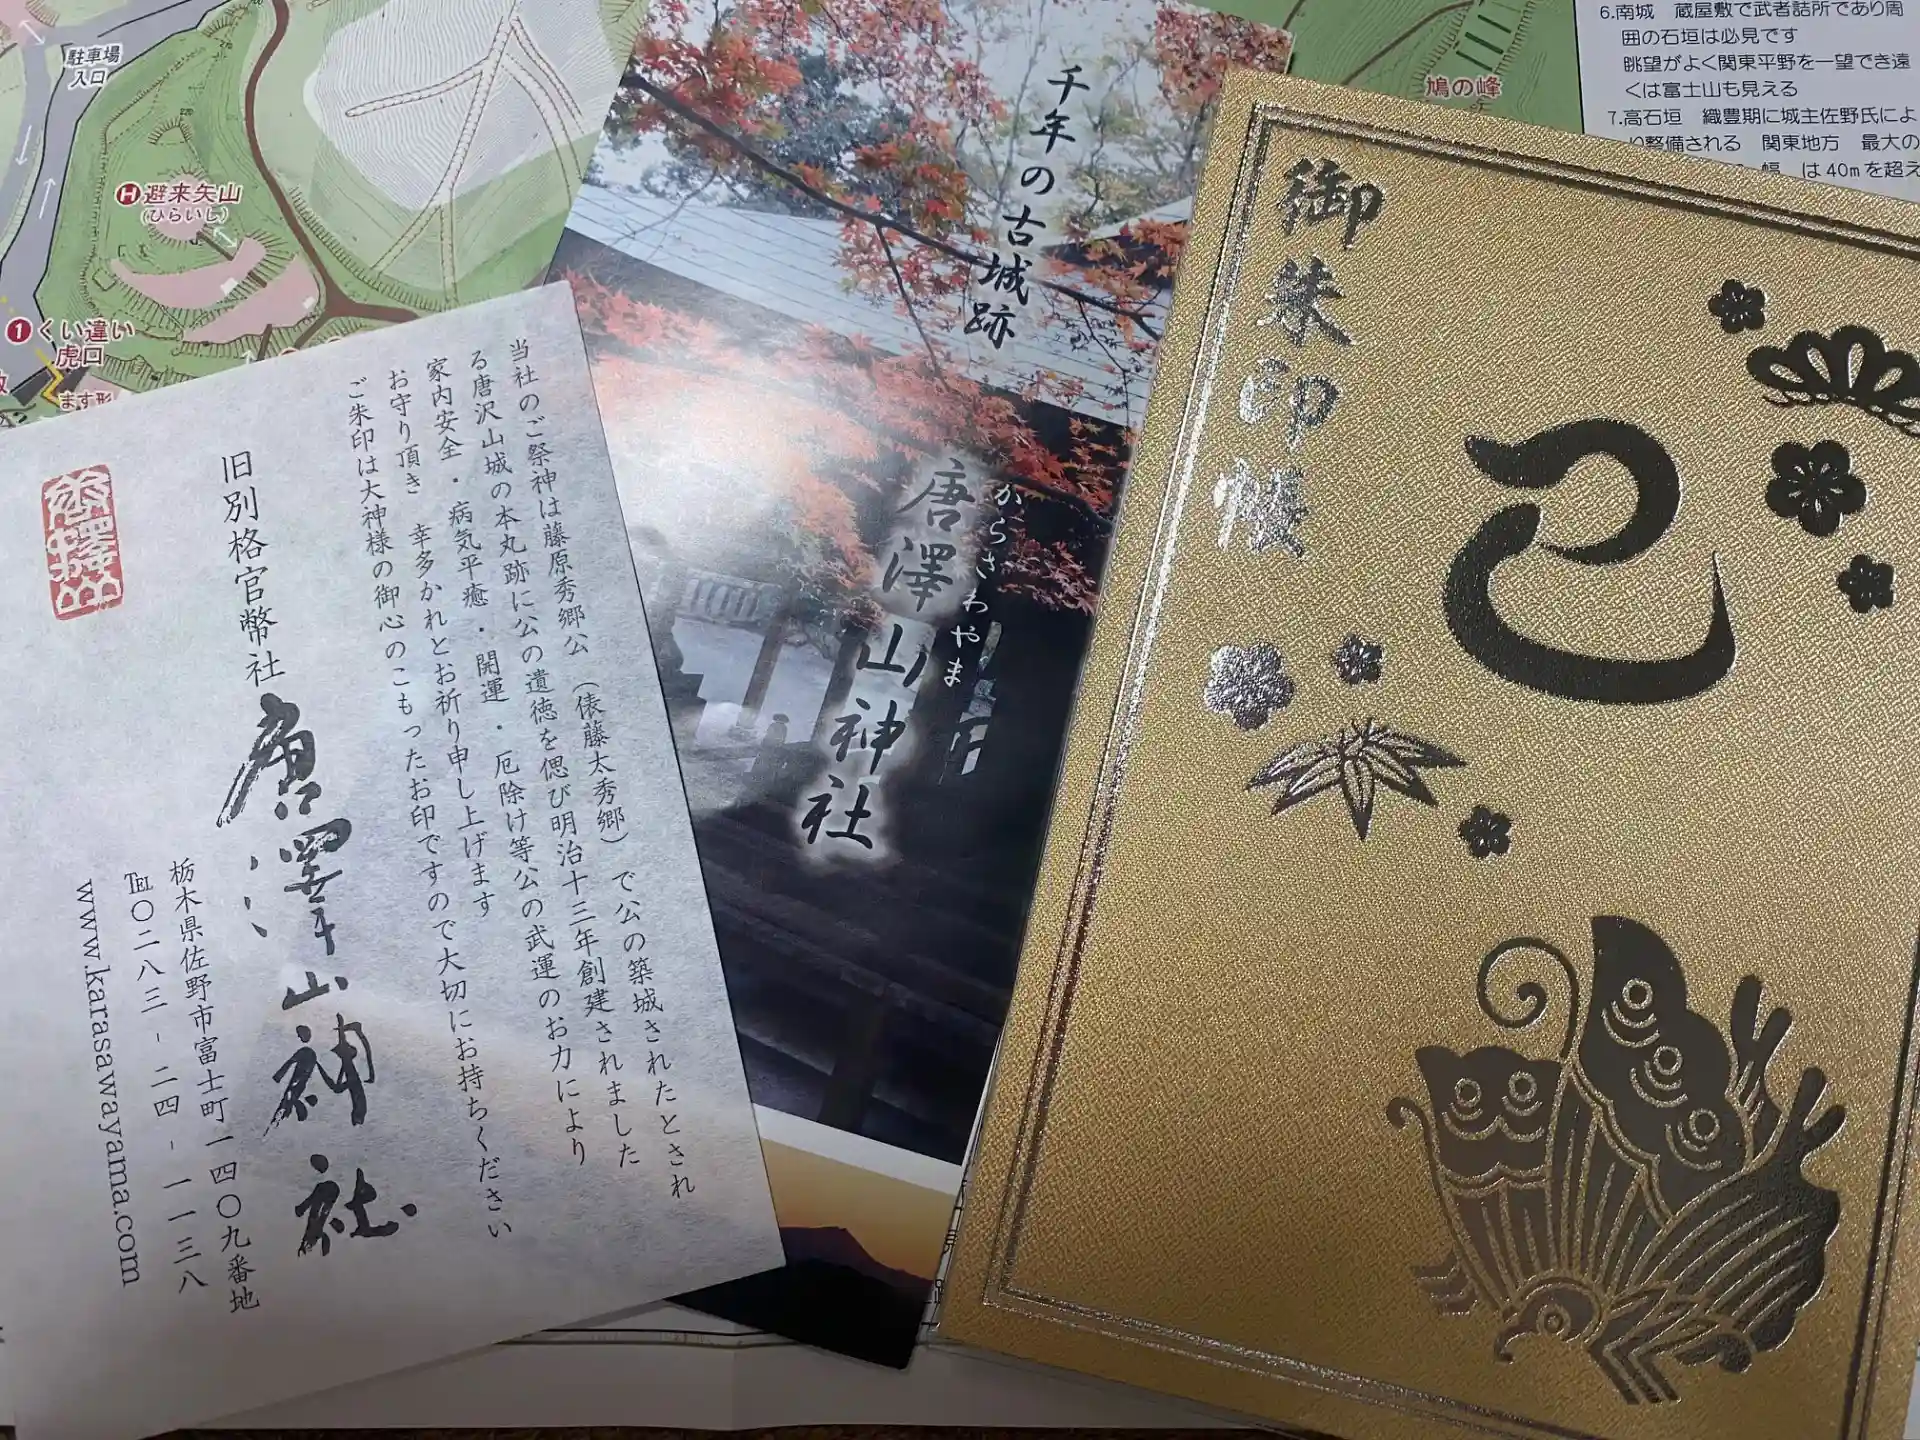 駐車場
入口
H 避来矢山
(ひらいし)
1 くい違い
虎口
ます形
千年の古城跡
からさわやま
唐澤山神社
鳩の峰
6.南城 蔵屋敷で武者詰所であり周
囲の石垣は必見です
眺望がよく関東平野を一望でき遠
くは富士山も見える
7.高石垣 織豊期に城主佐野氏によ
り整備される 関東地方 最大の
は40mを超え
御朱印帳
己
当社のご祭神は藤原秀郷公(俵藤太秀郷)で公の築城されたとされ
る唐沢山城の本丸跡に公の遺徳を偲び明治十三年創建されました
家内安全・病気平癒・開運・厄除け等公の武運のお力により
お守り頂き 幸多かれとお祈り申し上げます
ご朱印は大神様の御心のこもったお印ですので大切にお持ちください
旧別格官幣社 唐澤山神社
栃木県佐野市富士町一四〇九番地
℡〇二八三-二四-一一三八
www.karasawayama.com